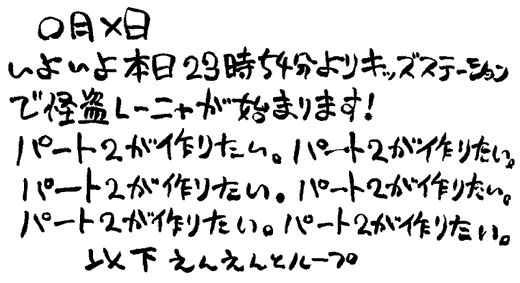 〇月×日
いよいよ本日23時54分よりキッズステーション
で怪盗レーニャが始まります!
パート2が作りたい。パート2が作りたい。
パート2が作りたい。パート2が作りたい。
パート2が作りたい。パート2が作りたい。
以下えんえんとループ